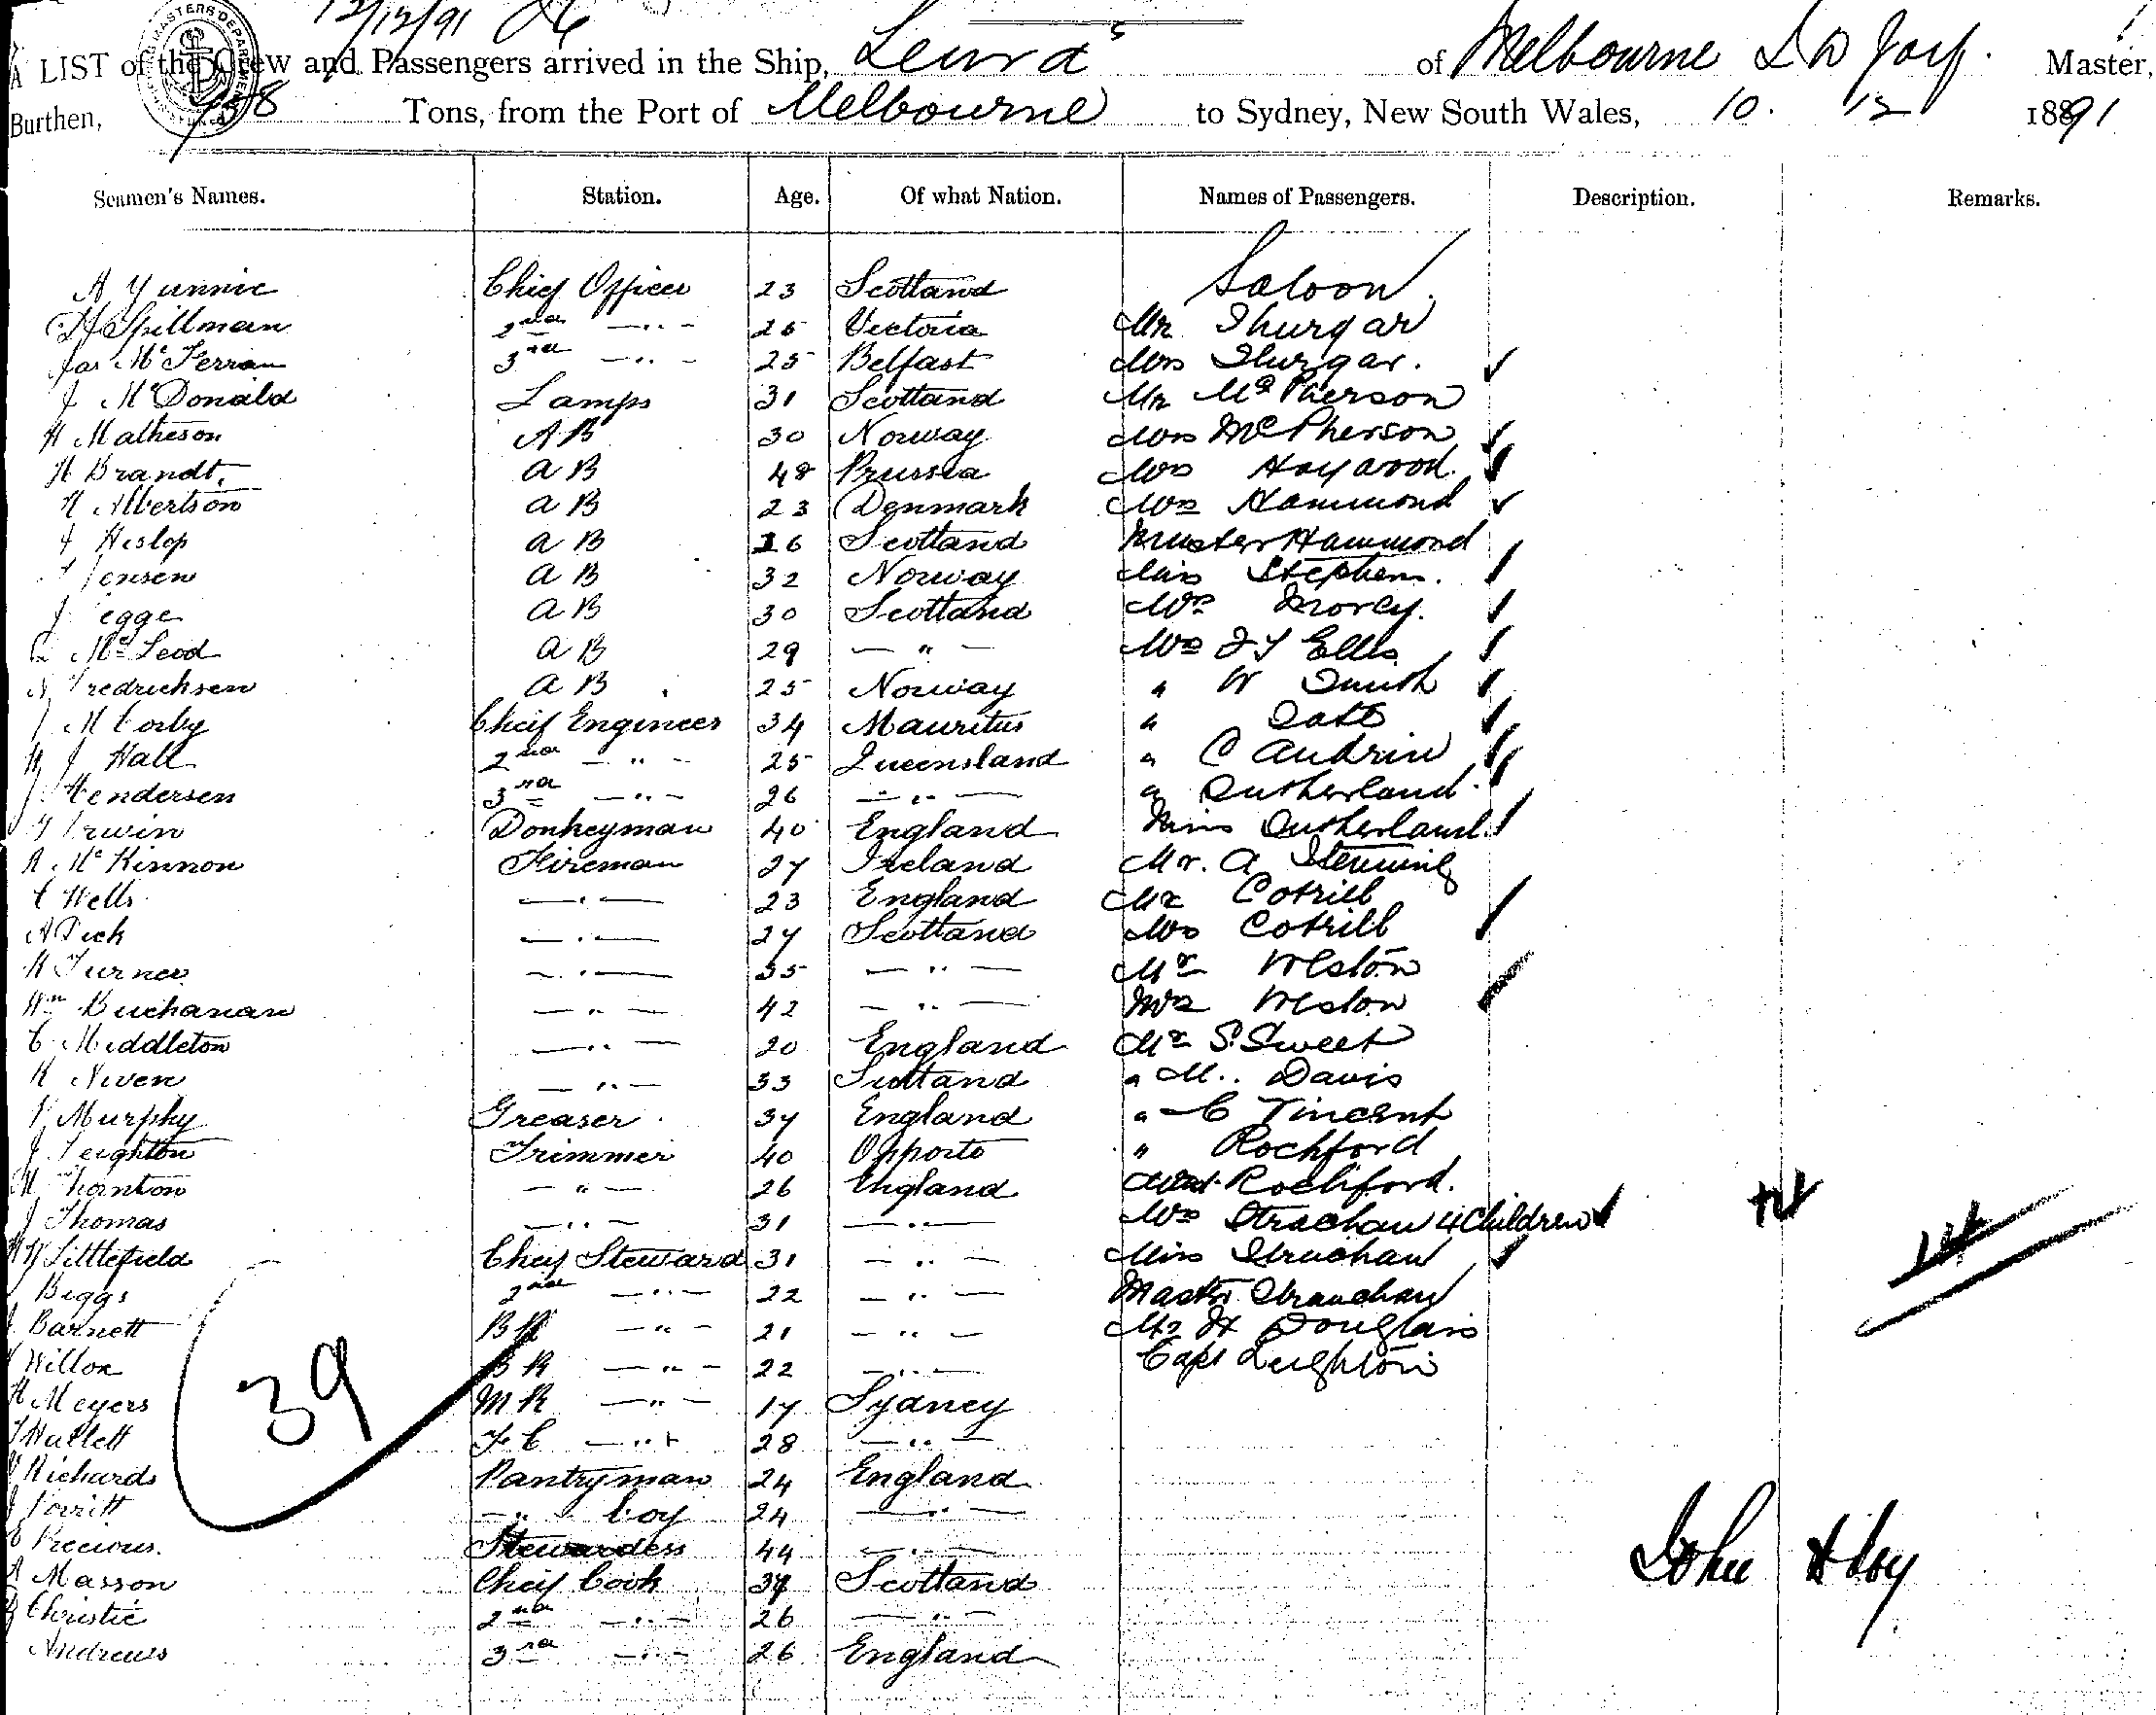 12/12/91
A LIST of the Crew and Passengers arrived in the Ship, of Melbourne Master,
Burthen, Tons, from the Port of Melbourne to Sydney, New South Wales, 10. 12 1891
Seamen's Names. Station. Age. Of what Nation. Names of Passengers. Description. Remarks.
Saloon.
Chief Officer 23 Scotland
Spillman 2nd —"— 26 Victoria Mr Thurgar
Jas McFerran 3rd —"— 25 Belfast Mrs Thurgar.
J McDonald Lamps 31 Scotland Mr McPherson
H Matheson AB 30 Norway Mrs McPherson
H Brandt. AB 48 Prussia Mrs Haywood.
N Albertson AB 23 Denmark Mrs Hammond
Heslop AB 26 Scotland Master Hammond
Jensen AB 32 Norway Miss Stephens.
AB 30 Scotland Morey.
McLeod AB 29 —"— Mrs Ellis
Fredrichsen AB 25 Norway " W Smith
M Corby Cheif Engineer 34 Mauritus "
J Hall 2nd —"— 25 Queensland " C Audrin
J Hendersen 3rd —"— 26 —"— " Sutherland.
Irwin Donkeyman 40 England Miss Sutherland.
McKinnon Fireman 27 Ireland Mr. A Stenning
C Wells —"— 23 England Mr Cotrill
—"— 27 Scotland Mrs Cotrill
Turner —"— 35 —"— Mr Weston
Wm Buchanan —"— 42 —"— Mrs Weston
C Middleton —"— 20 England Mr S. Sweet
Niven —"— 33 Scotland " M.. Davis
Murphy Greaser 37 England " C Vincent
J Leighton Trimmer 40 Opporto " Rochford
Thornton —"— 26 England Rochford.
J Thomas —"— 31 —"— Mrs Strachan 4 Children
Littlefield Cheif Steward 31 —"— Miss Strachan
Beggs 2nd —"— 22 —"— Master Strauchan
J. Barnett BR —"— 21 —"— Mr H Douglass
Willox BR —"— 22 —"— Capt Leighton
H Meyers MR —"— 17 Sydney
Hallett F C —"— 28 —"—
Richards Pantryman 24 England
—"— boy 24 —"—
Precious. Stewardess 44 —"—
A Masson Cheif Cook 37 Scotland
Christie 2nd —"— 26 —"—
Andrews 3rd —"— 26 England
39
14
John